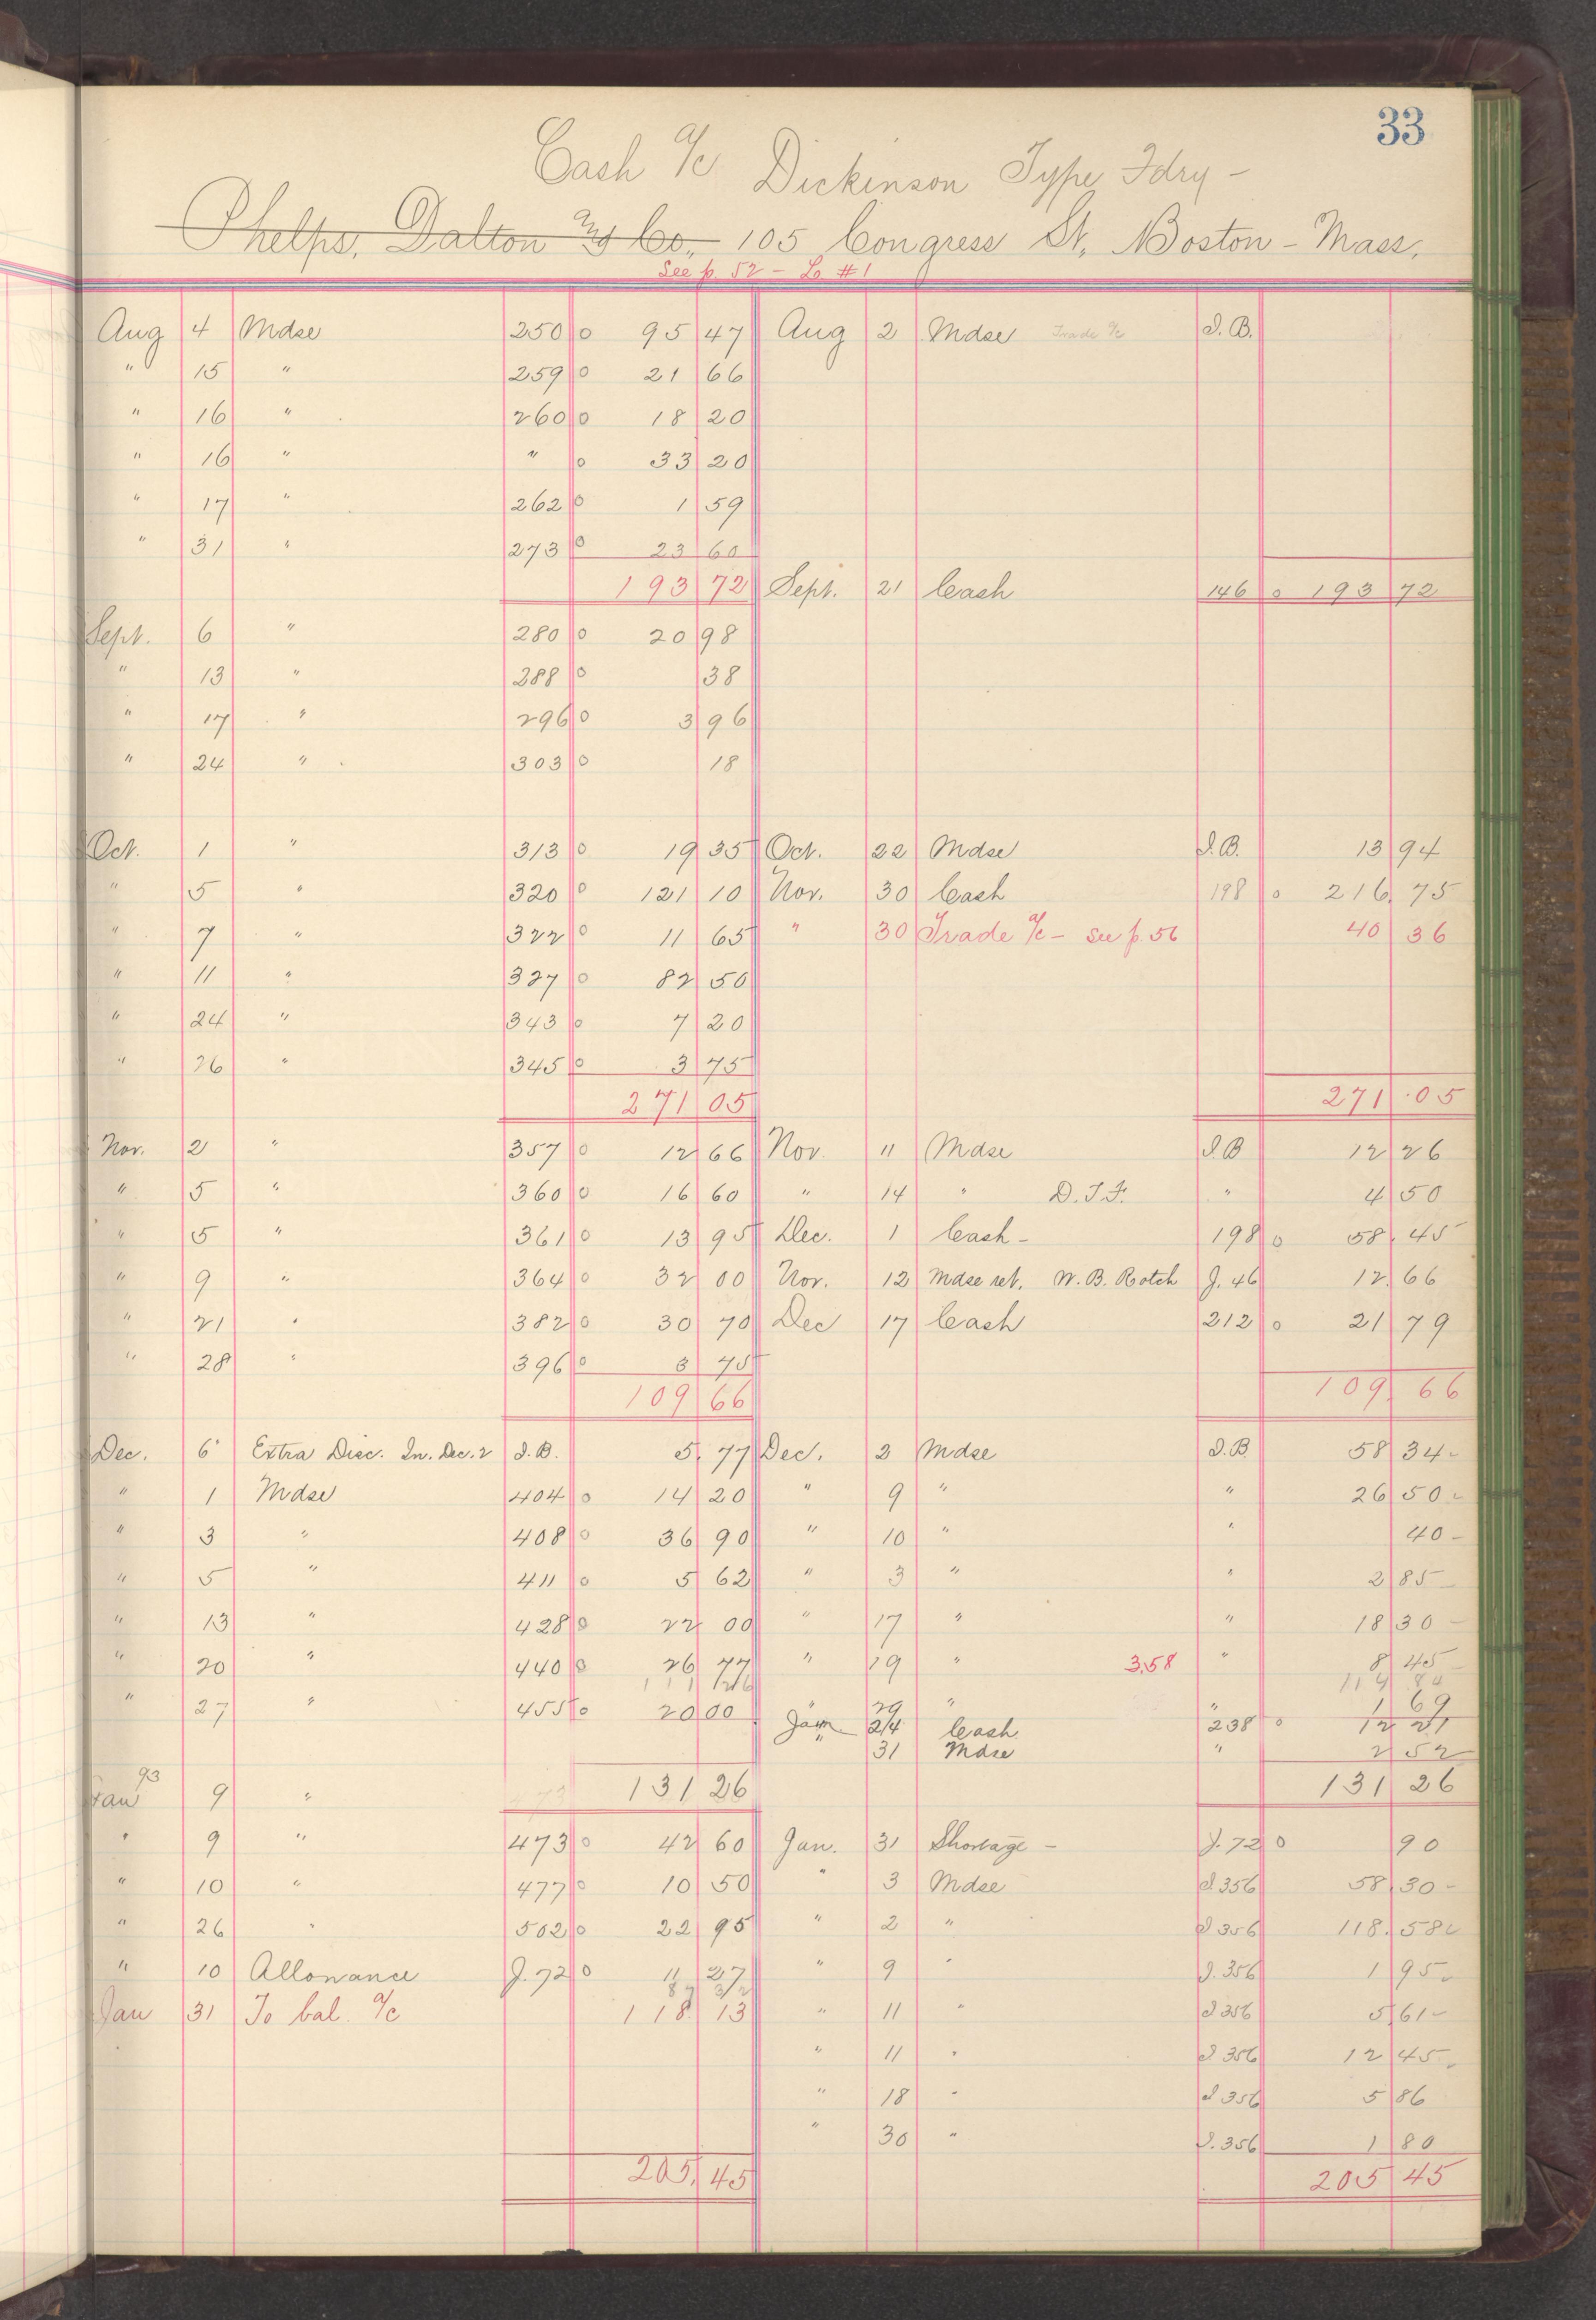 33
Cash a/c Dickinson Type Fdry -
Phelps, Dalton & Co., 105 Congress St, Boston - Mass.
See p. 52 - L #1
Aug 4 Mdse 250 0 95 47 Aug 2 Mdse Trade a/c I.B.
" 15 " 259 0 21 66
" 16 " 260 0 18 20
" 16 " " 0 33 20
" 17 " 262 0 1 59
" 31 " 273 0 23 60
193 72 Sept. 21 Cash 146 0 193 72
Sept. 6 " 280 0 20 98
" 13 " 288 0 38
" 17 " 296 0 3 96
" 24 " 303 0 18
Oct. 1 " 313 0 19 35 Oct. 22 Mdse I.B. 13 94
" 5 " 320 0 121 10 Nov. 30 Cash 198 0 216 75
" 7 " 322 0 11 65 " 30 Trade a/c - see p. 56 40 36
" 11 " 327 0 82 50
" 24 " 343 0 7 20
" 26 " 345 0 3 75
271 05 271 05
Nov. 2 " 357 0 12 66 Nov. 11 Mdse I.B 12 26
" 5 " 360 0 16 60 " 14 " D.T.F. " 4 50
" 5 " 361 0 13 95 Dec. 1 Cash - 198 0 58 45
" 9 " 364 0 32 00 Nov. 12 Mdse ret. W.B. Rotch J. 46 12 66
" 21 " 382 0 30 70 Dec 17 Cash 212 0 21 79
" 28 " 396 0 3 75
109 66 109 66
Dec. 6 Extra Disc. In. Dec. 2 I.B. 5 77 Dec. 2 Mdse I.B 58 34 -
" 1 Mdse 404 0 14 20 " 9 " " 26 50 -
" 3 " 408 0 36 90 " 10 " " 40 -
" 5 " 411 0 5 62 " 3 " " 2 85 -
" 13 " 428 0 22 00 " 17 " " 18 30 -
" 20 " 440 0 26 77 " 19 " 3.58 " 8 45 -
111 26 114 84
" 27 " 455 0 20 00 " 29 " " 1 69
Jan 24 Cash 238 0 12 21
" 31 Mdse " 2 52
131 26 131 26
Jan 93 9 " 473
" 9 " 473 0 42 60 Jan. 31 Shortage - J. 72 0 90
" 10 " 477 0 10 50 " 3 Mdse I 356 58 30 -
" 26 " 502 0 22 95 " 2 " I 356 118 58
" 10 Allowance J. 72 0 11 27 " 9 " I. 356 1 95
87 32
Jan 31 To bal. a/c 118 13 " 11 " I 356 5 61 -
" 11 " I 356 12 45
" 18 " I 356 5 86
" 30 " I. 356 1 80
205 45 205 45